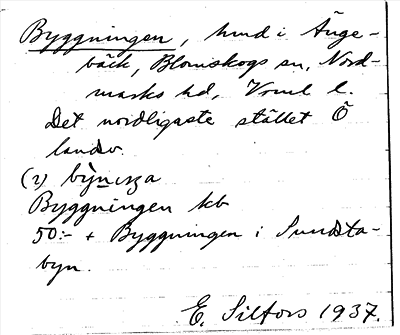 Byggningen, hmd i Änge-
bäck, Blomskogs sn, Nord-
marks hd, Vrml l.
Det nordligaste stället Ö
landsv.
(2)
Byggningen kb
50:- + Byggningen i Sundsta-
byn.
E. Silfors 1937.